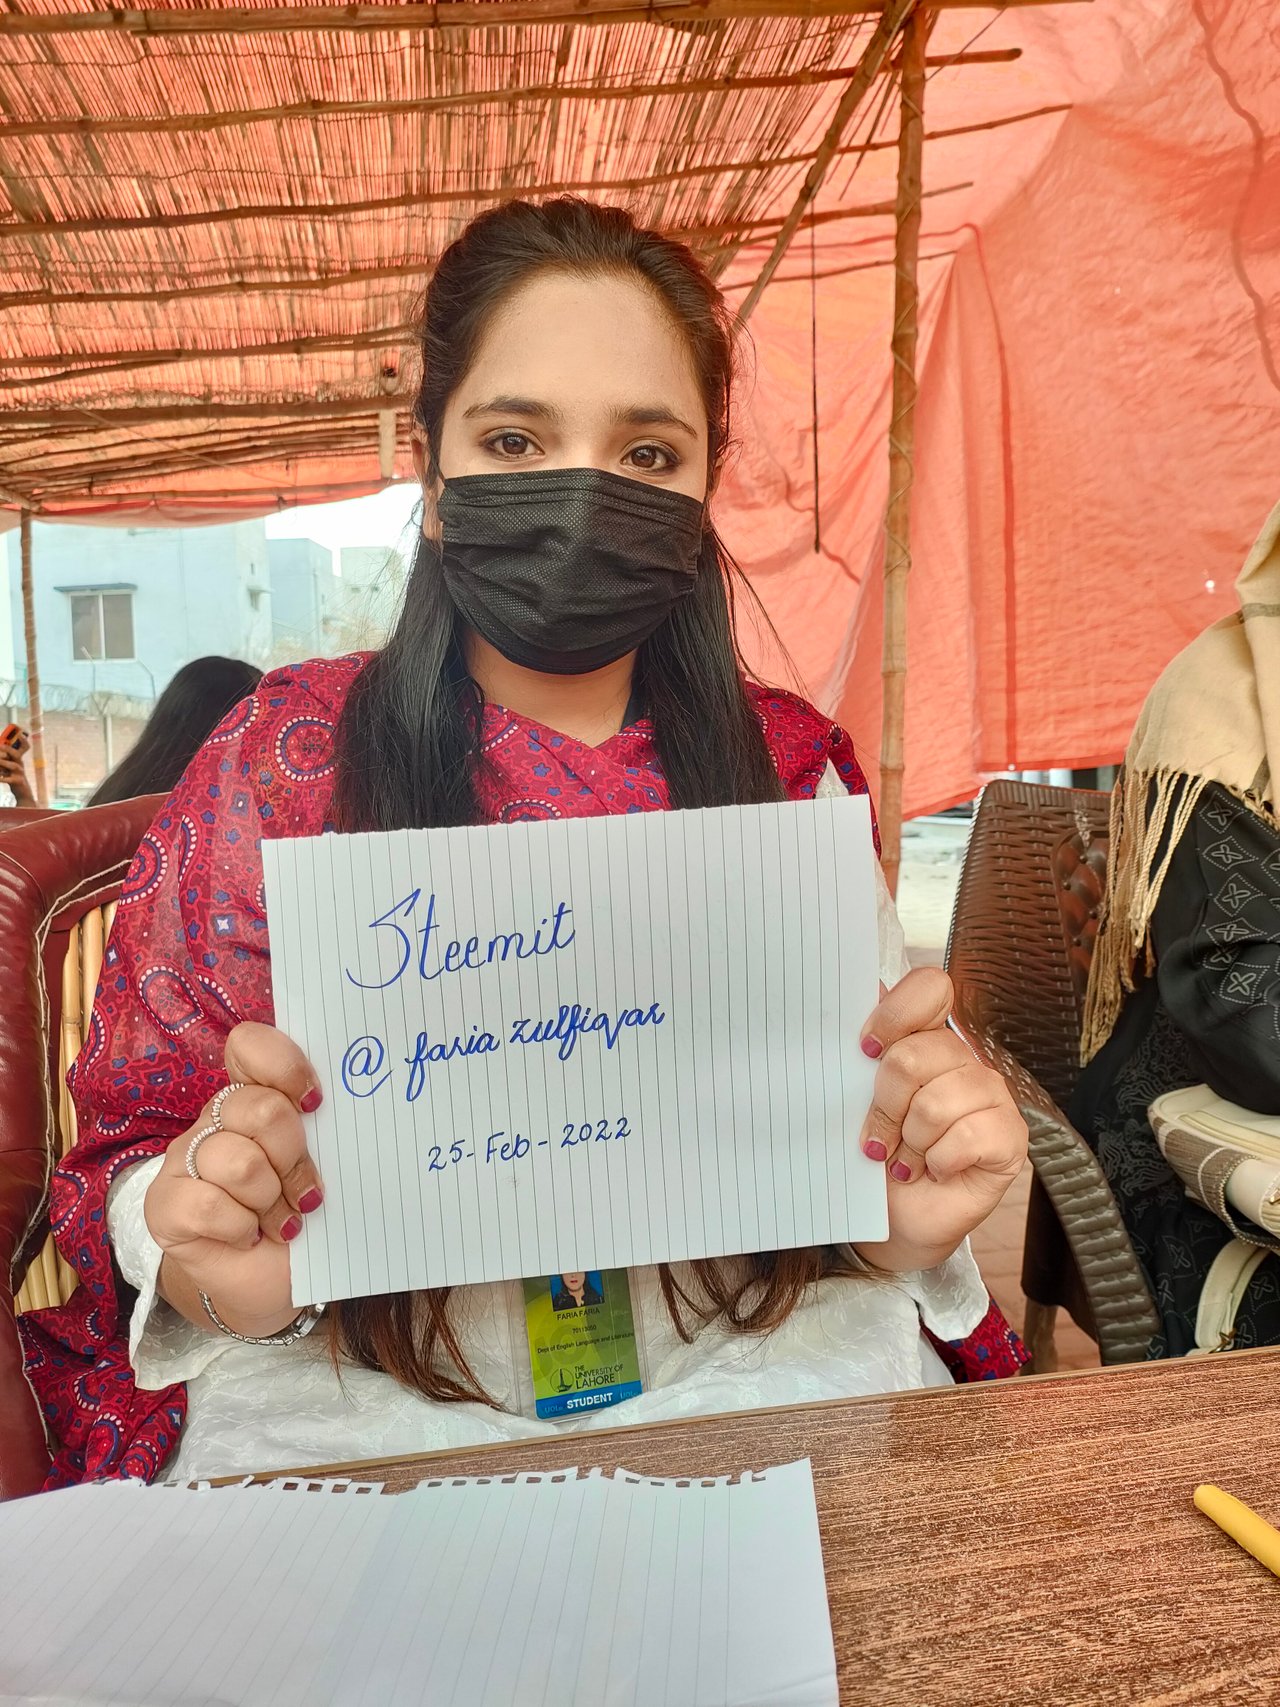 Steemit
@ faria zulfiqar
25-Feb-2022
FARIA FARIA
70113050
Dept of English Language and Literature
THE
UNIVERSITY OF
LAHORE
STUDENT